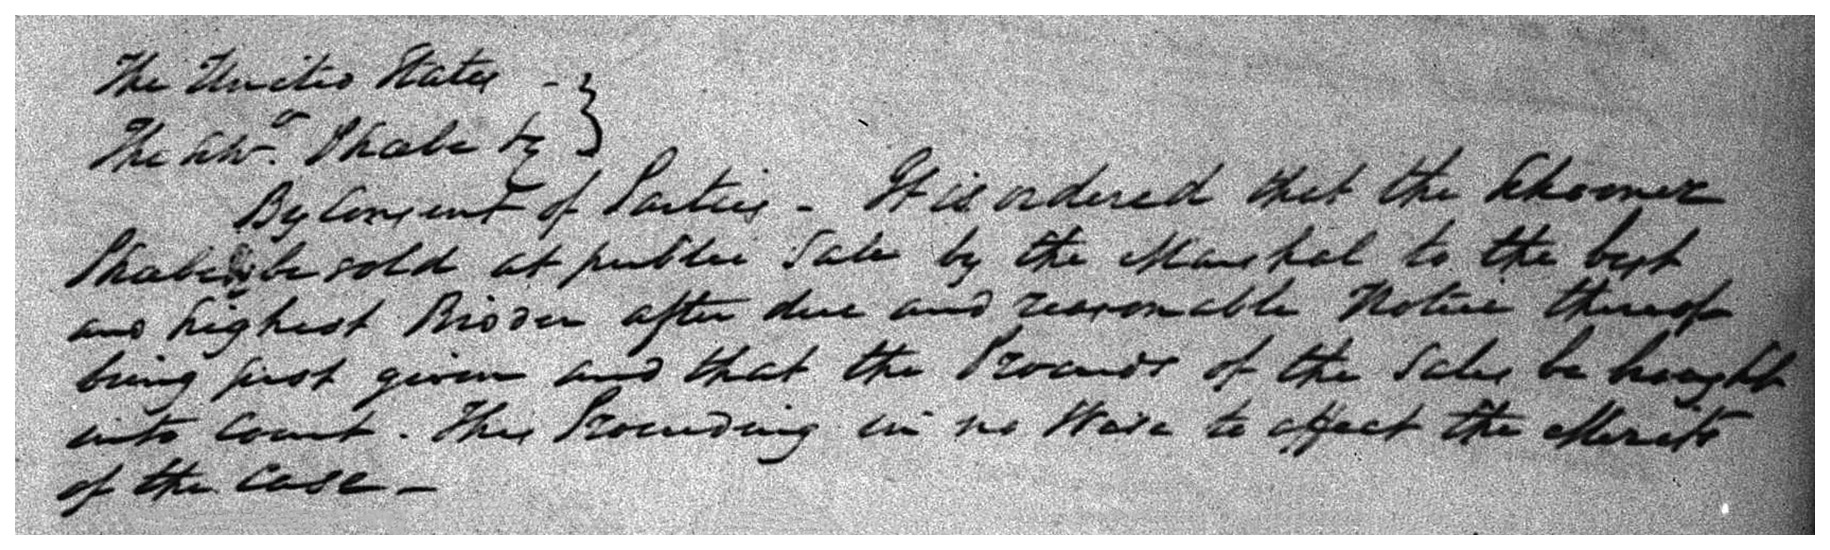 The United States - }
The Schr. Phabe &c }
By Consent of Parties - It is ordered that the Schooner
Phabe be sold at public Sale by the Marshal to the best
and highest Bidder after due and reasonable Notice thereof
being first given and that the Proceeds of the Sales be brought
into Court. This Proceeding in no Wise to affect the Merits
of the Case -